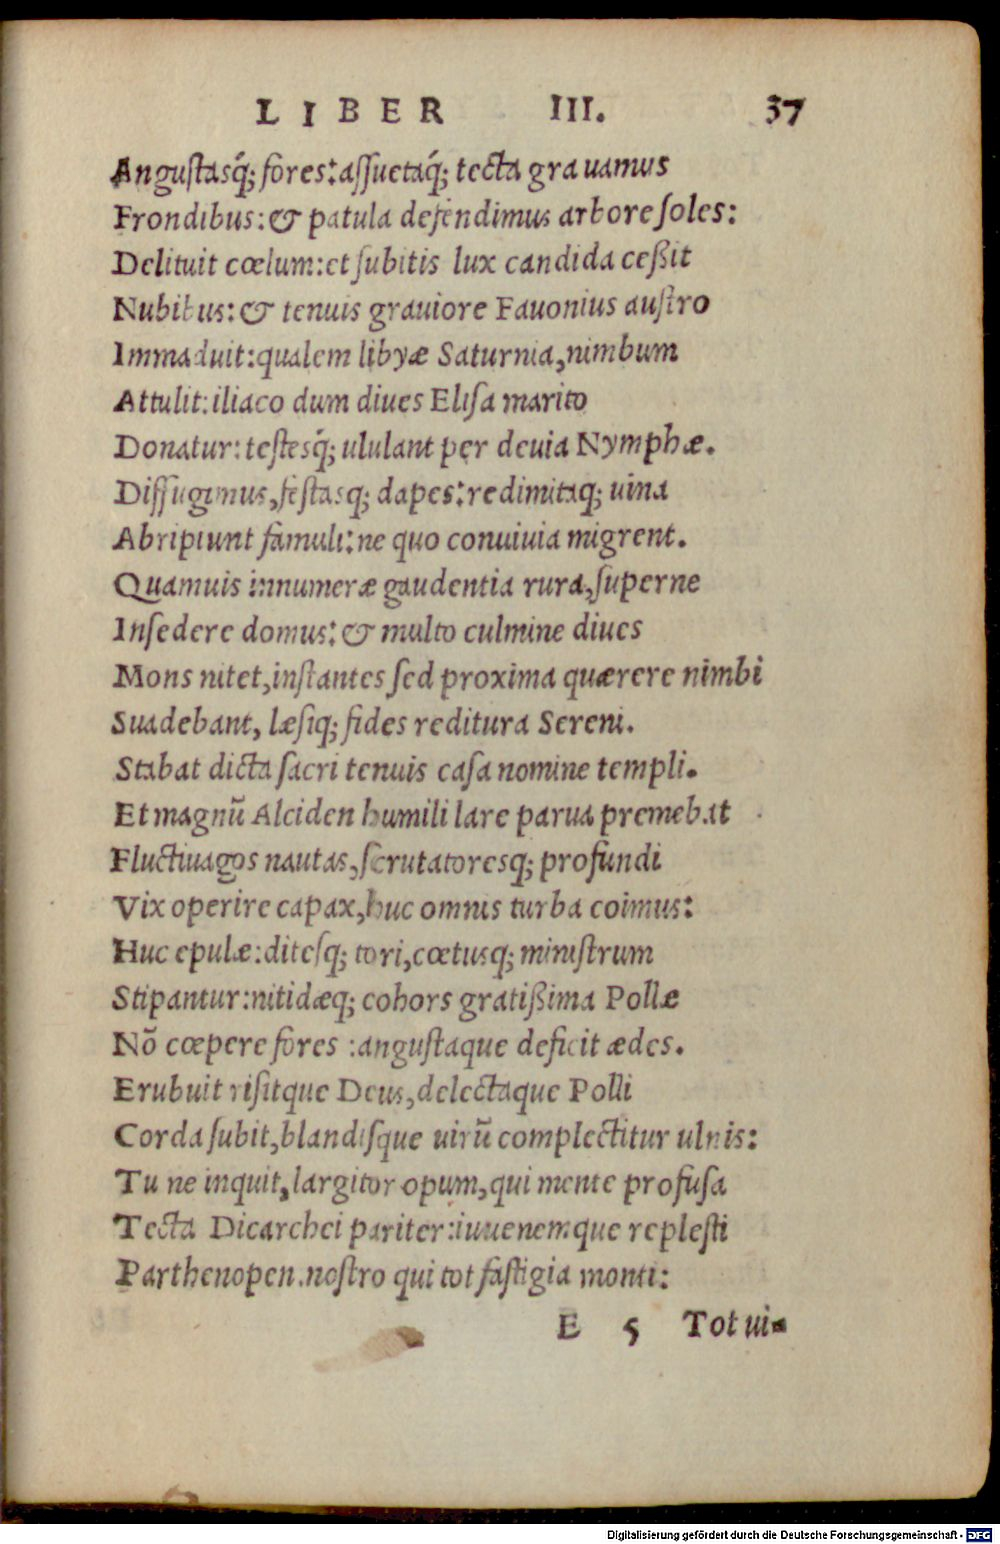 LIBER III. 37
Angustasq́; fores: aſſuetaq́; tecta grauamus
Frondibus: & patula defendimus arbore ſoles:
Delituit cœlum: et ſubitis lux candida ceßit
Nubibus: & tenuis grauiore Fauonius auſtro
Immaduit: qualem libyæ Saturnia, nimbum
Attulit: iliaco dum diues Eliſa marito
Donatur: teſtesq́; ululant per deuia Nymphæ.
Diffugimus, feſtasq; dapes: redimitaq; uina
Abripiunt famuli: ne quo conuiuia migrent.
Quamuis innumeræ gaudentia rura, ſuperne
Inſedere domus: & multo culmine diues
Mons nitet, inſtantes ſed proxima quærere nimbi
Suadebant, læſiq; fides reditura Sereni.
Stabat dicta ſacri tenuis caſa nomine templi.
Et magnū Alciden humili lare parua premebat
Fluctiuagos nautas, ſcrutatoresq; profundi
Vix operire capax, huc omnis turba coimus:
Huc epulæ: diteſq; tori, cœtusq; miniſtrum
Stipantur: nitidæq; cohors gratißima Pollæ
Nō cœpere fores : anguſtaque deficit ædes.
Erubuit riſitque Deus, delectaque Polli
Corda ſubit, blandiſque uirū complectitur ulnis:
Tu ne inquit, largitor opum, qui mente profuſa
Tecta Dicarchei pariter: iuuenemque repleſti
Parthenopen. noſtro qui tot faſtigia monti:
E 5 Tot ui-
Digitalisierung gefördert durch die Deutsche Forschungsgemeinschaft - DFG